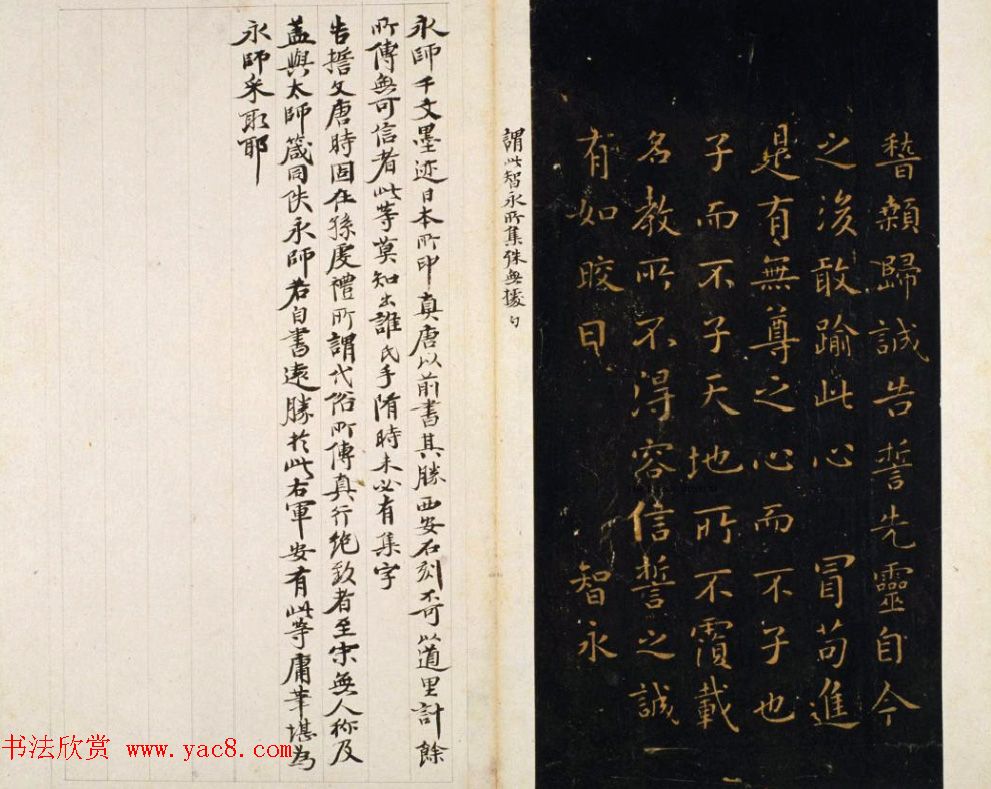 稽顙歸誠告誓先靈自今
之後敢踰此心　冒苟進
是有無尊之心而不子也
子而不子天地所不覆載
名教所不得容信誓之誠
有如皎日　　　智永
謂此智永所集殊無據
永師千文墨迹日本所印真唐以前書其勝西安石刻不可以道里計餘
所傳無可信者此等莫知出誰氏手隋時未必有集字
告誓文唐時固在孫虔禮所謂代俗所傳真行絶致者至宋無人称及
盖與太師箴同佚永師若自書遠勝於此右軍安有此等庸筆堪為
永師采取耶
书法欣赏 www.yac8.com